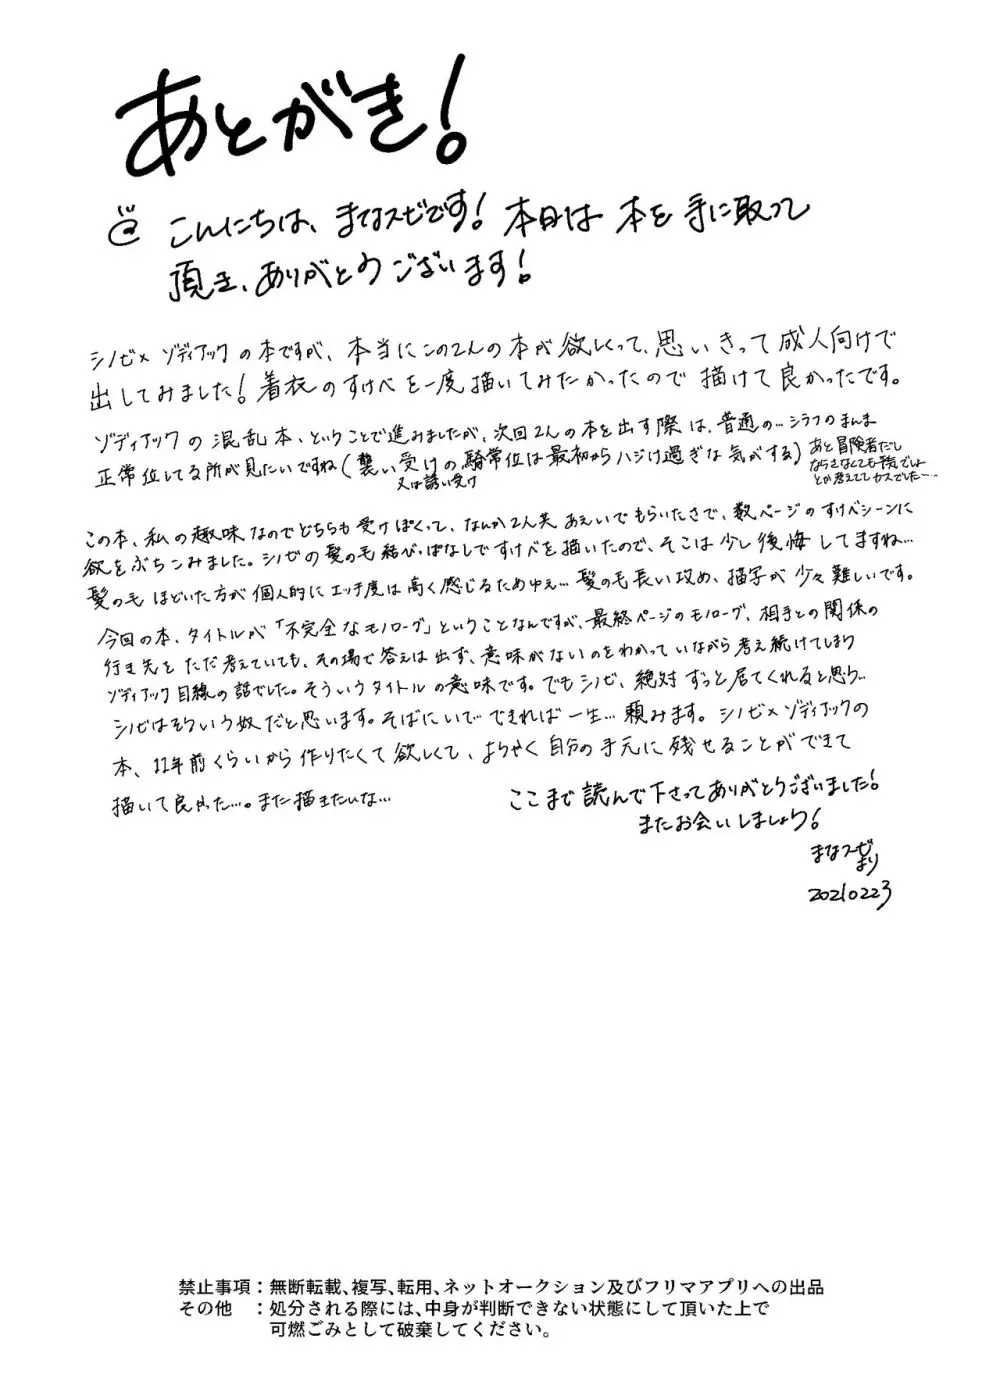 あとがき!
こんにちは、まなスゼです! 本日は 本を 手に取って
頂き、ありがとうございます!
シノゼ×ゾディアックの本ですが、本当にこの2人の本が欲しくって、思いきって成人向けで
出してみました! 着衣のすけべを一度描いてみたかったので描けて良かったです。
ゾディアックの混乱本、ということで進みましたが、次回2人の本を出す際は、普通の…シラフのまんま
正常位してる所が見たいですね(襲い受けの騎常位は最初からハジけ過ぎな気がする)
又は誘い受け
あと冒険者だし
ならさなくても
とか考えててカスでした…
この本、私の趣味なのでどちらも受けぽくって、なんか2人共あえいでもらいたさで、数ページのすけべシーンに
欲をぶちこみました。シノゼの髪の毛結びっぱなしですけべを描いたので、そこは少し後悔してますね…
髪の毛ほどいた方が個人的にエッチ度は高く感じるためゆえ…髪の毛長い攻め、描写が少々難しいです。
今回の本、タイトルが「不完全なモノローグ」ということなんですが、最終ページのモノローグ、相手との関係の
行き先をただ考えていても、その場で答えは出ず、意味がないのをわかっていながら考え続けてしまう
ゾディアック目線の話でした。そういうタイトルの意味です。でもシノゼ、絶対ずっと居てくれると思う…
シノゼはそういう奴だと思います。そばにいて…できれば一生…頼みます。シノゼ×ゾディアックの
本、11年前くらいから作りたくて欲しくて、ようやく自分の手元に残せることができて
描いて良かった…。また描きたいな…
ここまで読んで下さってありがとうございました!
またお会いしましょう!
まなスゼ
より
20210223
禁止事項:無断転載、複写、転用、ネットオークション及びフリマアプリへの出品
その他 :処分される際には、中身が判断できない状態にして頂いた上で
可燃ごみとして破棄してください。